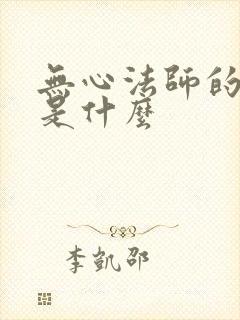 無心法師的
是什麼
李凱邵